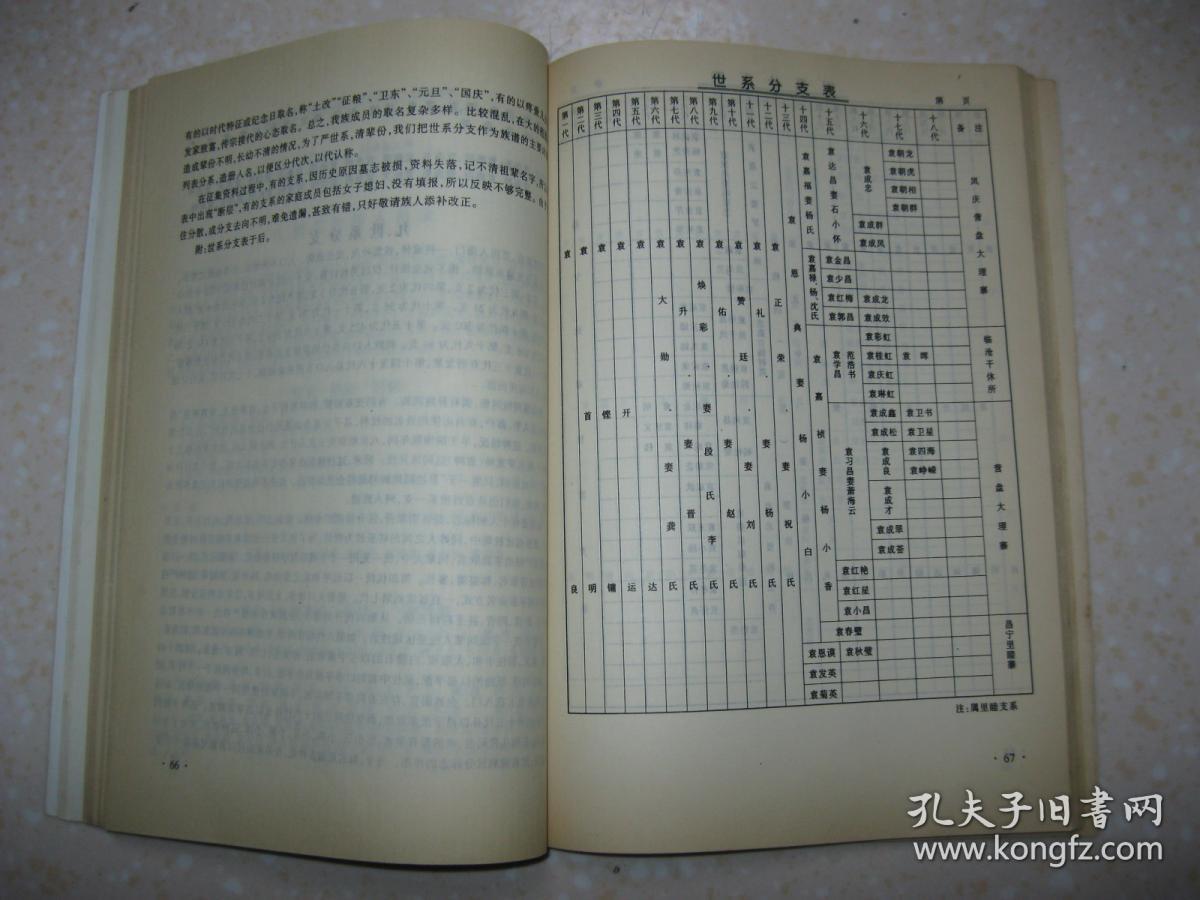 有的以时代特征或纪念日取名,称“土改”“征粮”、“卫东”、“元旦”、“国庆”,有的以
发家致富,传宗接代的心态取名。总之,我族成员的取名复杂多样。比较混乱,在大的
造成辈份不明,长幼不清的情况,为了严世系,清辈份,我们把世系分支作为族谱的主要
列表分系,造册入名,以便区分代次,以代认称。
在征集资料过程中,有的支系,因历史原因墓志被损,资料失落,记不清祖辈名字,
表中出现“断层”,有的支系的家庭成员包括女子媳妇、没有填报,所以反映不够完整。
住分散,成分支去向不明,难免遗漏,甚致有错,只好敬请族人添补改正。
附:世系分支表于后。
· 66 ·
世系分支表
第 页
第一代
第二代
第三代
第四代
第五代
第六代
第七代
第八代
第九代
第十代
十一代
十二代
十三代
十四代
十五代
十六代
十七代
十八代
备注
袁良
袁首明
袁铿镛
袁开运
袁达
袁大勋·妻龚氏
袁升·妻晋氏
袁焕彩·妻段氏李氏
袁佑·妻赵氏
袁赞廷·妻刘氏
袁礼·妻杨氏
袁正荣·妻祝氏
袁恩典妻杨小白
袁嘉福妻杨氏
袁达昌妻石小怀
袁成忠
袁朝龙
袁朝虎
袁朝相
袁朝群
袁成群
袁成凤
凤庆营盘大理寨
袁嘉禄、杨、沈氏
袁金昌
袁少昌
袁红梅
袁成龙
袁郭昌
袁成效
袁嘉桢妻杨小香
袁学昌
范浩书
袁彩虹
袁桂虹
袁晖
袁庆虹
袁琳虹
临沧干休所
袁习昌妻萧海云
袁成鑫
袁卫书
袁成松
袁卫星
袁成良
袁四海
袁峥嵘
袁成才
袁成翠
袁成荟
营盘大理寨
袁红艳
袁红星
袁小昌
袁春璧
袁恩谟
袁秋璧
袁发英
袁菊英
昌宁里睦寨
注:属里睦支系
· 67 ·
孔夫子旧书网
www.kongfz.com